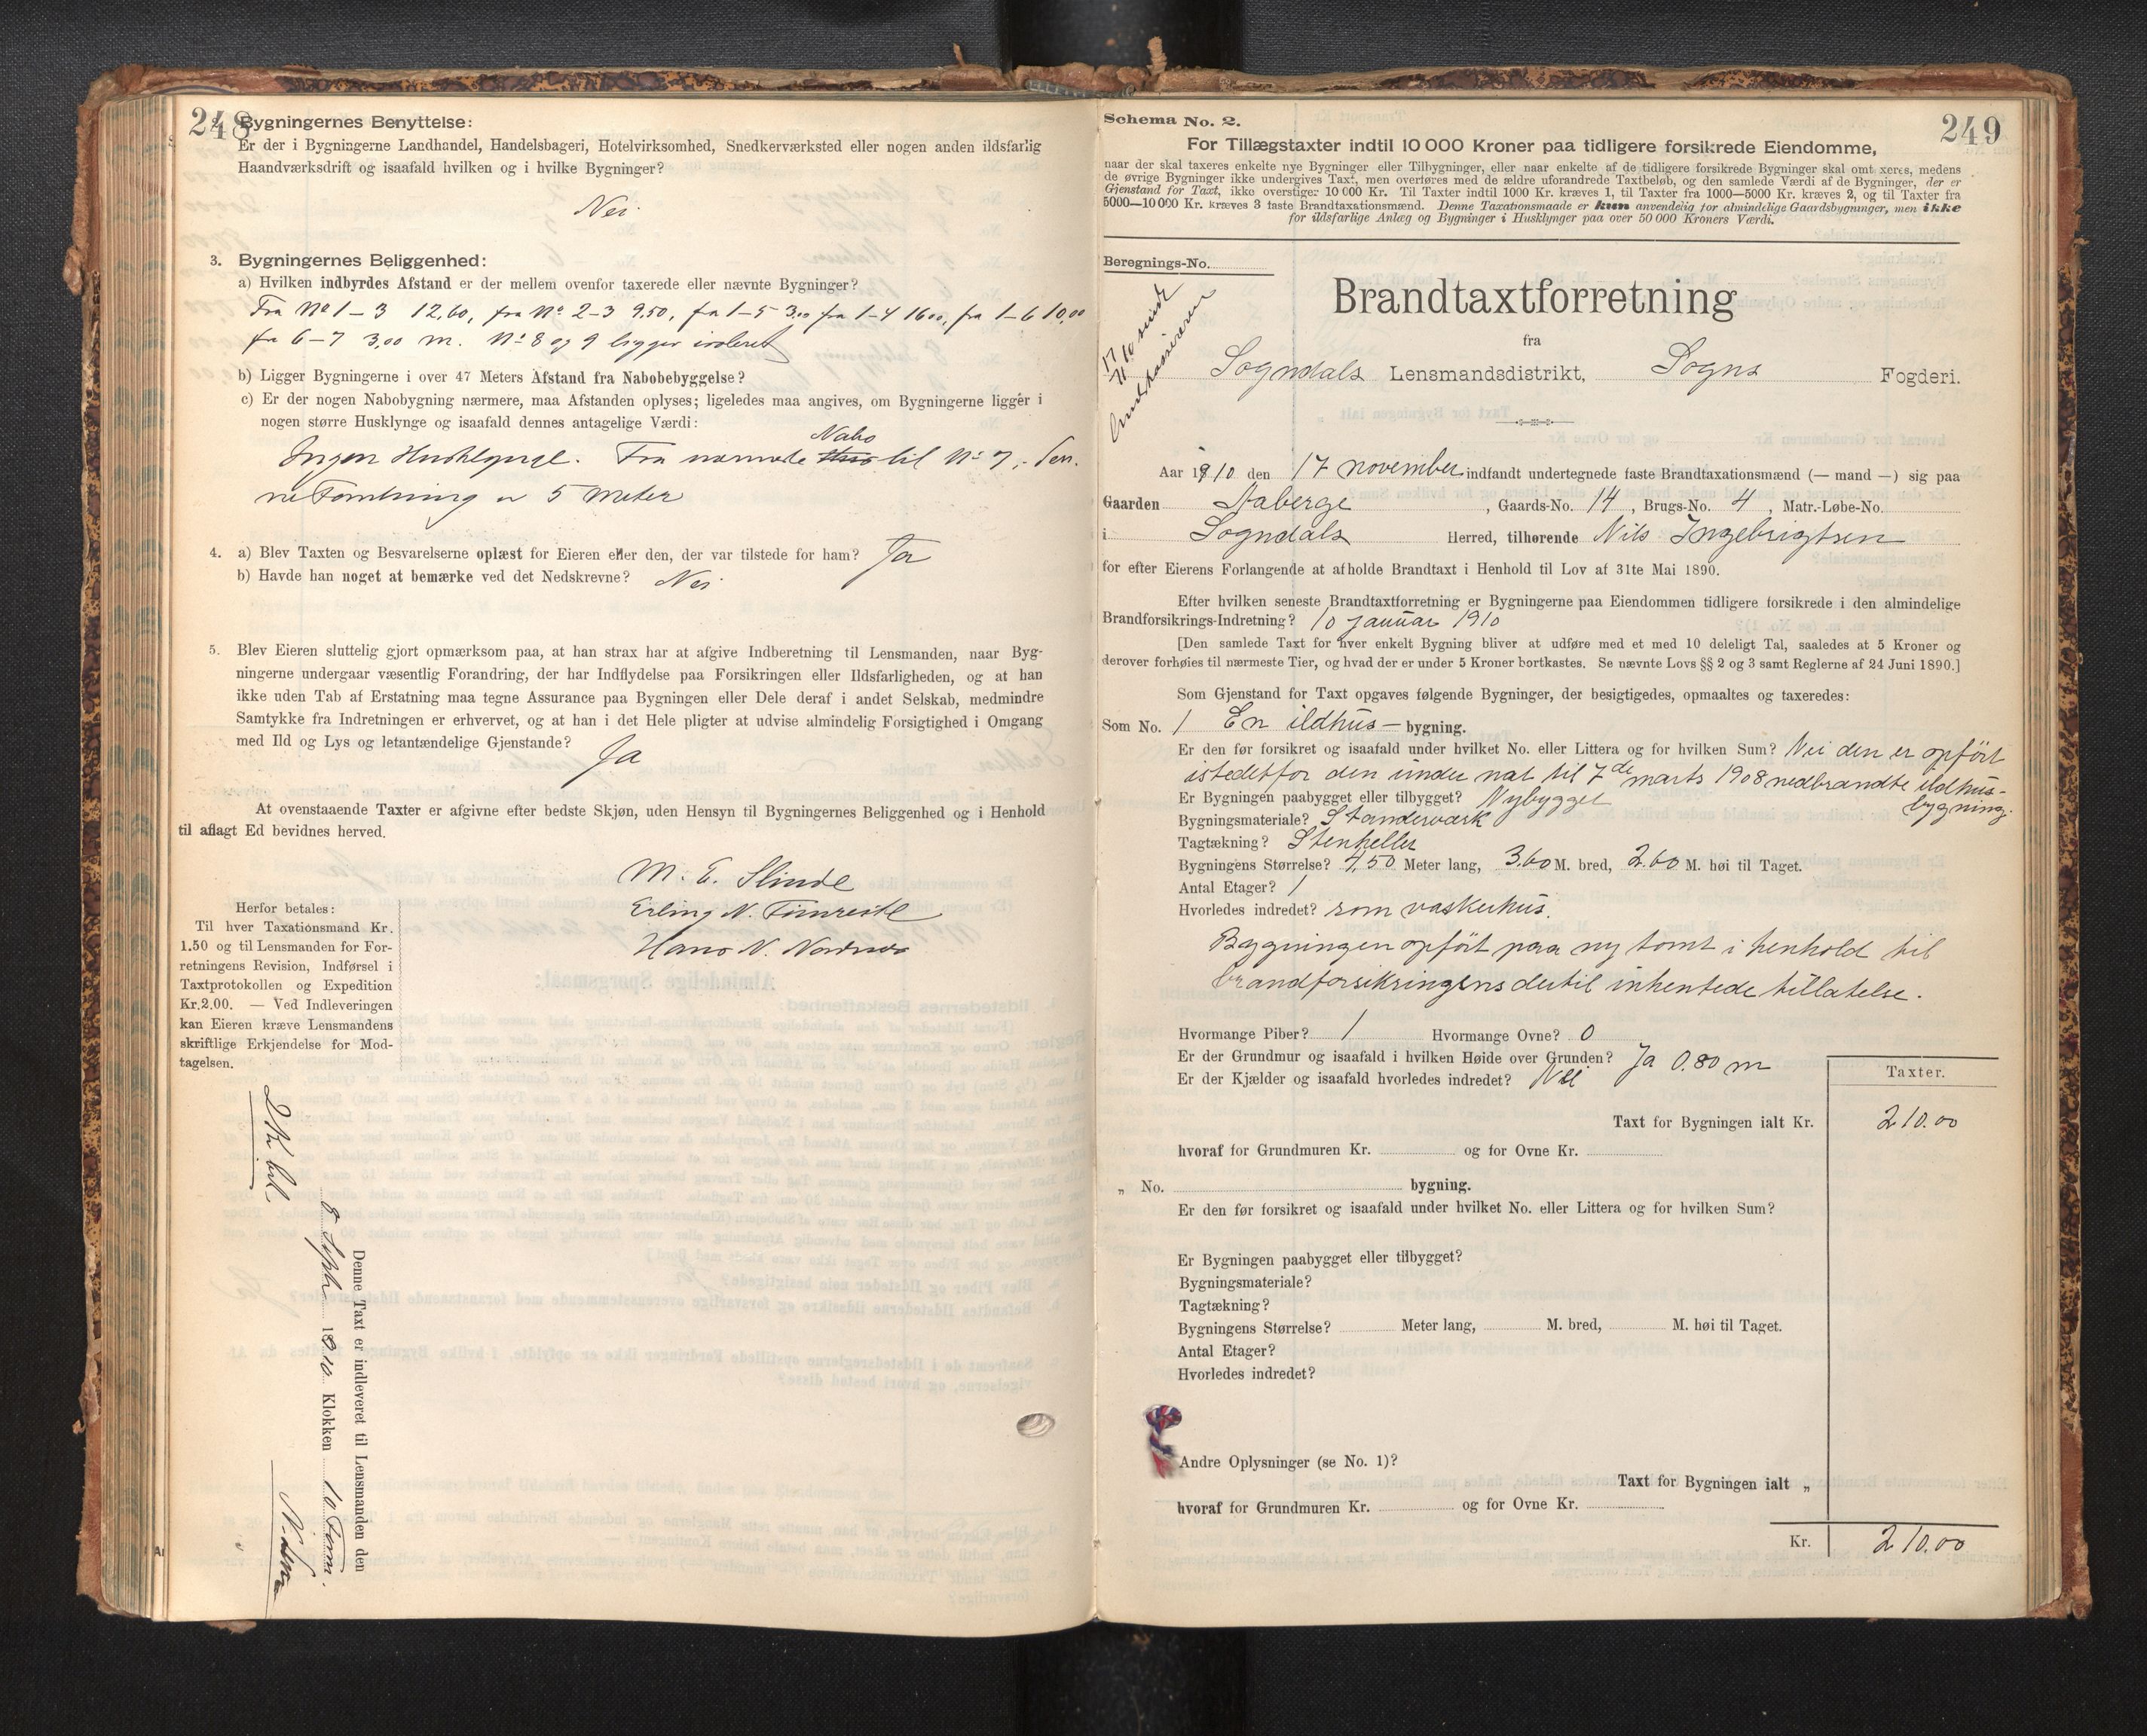 248
2. Bygningernes Benyttelse:
Er der i Bygningerne Landhandel, Handelsbageri, Hotelvirksomhed, Snedkerværksted eller nogen anden ildsfarlig
Haandværksdrift og isaafald hvilken og i hvilke Bygninger?
Nei
3. Bygningernes Beliggenhed:
a) Hvilken indbyrdes Afstand er der mellem ovenfor taxerede eller nævnte Bygninger?
Fra No 1 – 3 12,60, fra No 2–3 9.50, fa 1–5 3.00 fra 1–4 16.00, fra 1–6 10,00
fr 6–7 3,00 m. No 8 og 9 ligger isoleret
b) Ligger Bygningerne i over 47 Meters Afstand fra Nabobebyggelse?
c) Er der nogen Nabobygning nærmere, maa Afstanden oplyses; ligeledes maa angives, om Bygningerne ligger i
nogen større Husklynge og isaafald dennes antagelige Værdi:
Nabo
Ingen Husklynge. Fra nærmeste Hus til No 7, den-
ne er 5 Meter
4. a) Blev Taxten og Besvarelserne oplæst for Eieren eller den, der var tilstede for ham? Ja
b) Havde han noget at bemærke ved det Nedskrevne? Nei
5. Blev Eieren sluttelig gjort opmærksom paa, at han strax har at afgive Indberetning til Lensmanden, naar Byg-
ningerne undergaar væsentlig Forandring, der har Indflydelse paa Forsikringen eller Ildsfarligheden, og at han
ikke uden Tab af Erstatning maa tegne Assurance paa Bygningen eller Dele deraf i andet Selskab, medmindre
Samtykke fra Indretningen er erhvervet, og at han i det Hele pligter at udvise almindelig Forsigtighed i Omgang
med Ild og Lys og letantændelige Gjenstande? Ja
At ovenstaaende Taxter er afgivne efter bedste Skjøn, uden Hensyn til Bygningernes Beliggenhed og i Henhold
til aflagt Ed bevidnes herved.
M. E. Slinde
Erling N.
Hans N.
Herfor betales:
Til hver Taxationsmand Kr.
1.50 og til Lensmanden for For-
retningens Revision, Indførsel i
Taxtprotokollen og Expedition
Kr.2.00. — Ved Indleveringen
kan Eieren kræve Lensmandens
skriftlige Erkjendelse for Mod-
tagelsen.
2 Kr bet.
Denne Taxt er indleveret til Lensmanden den
8 Septr 1910 Klokken 10 Form.
249
Schema No. 2.
For Tillægstaxter indtil 10 000 Kroner paa tidligere forsikrede Eiendomme,
naar der skal taxeres enkelte nye Bygninger eller Tilbygninger, eller naar enkelte af de tidligere forsikrede Bygninger skal omt xeres, medens
de øvrige Bygninger ikke undergives Taxt, men overføres med de ældre uforandrede Taxtbeløb, og den samlede Værdi af de Bygninger, der er
Gjenstand for Taxt, ikke overstiger 10 000 Kr. Til Taxter indtil 1000 Kr. kræves 1, til Taxter fra 1000—5000 Kr. kræves 2, og til Taxter fra
5000—10 000 Kr. kræves 3 faste Brandtaxationsmænd. Denne Taxationsmaade er kun anvendelig for almindelige Gaardsbygninger, men ikke
for ildsfarlige Anlæg og Bygninger i Husklynger paa over 50 000 Kroners Værdi.
Beregnings-No.
17/11 10 sendt
Brandtaxtforretning
fra
Sogndals Lensmandsdistrikt, Sogns Fogderi.
Aar 1910 den 17 november indfandt undertegnede faste Brandtaxationsmænd (— mand —) sig paa
Gaarden Aaberge, Gaards-No. 14, Brugs-No. 4, Matr.-Løbe-No.
i Sogndals Herred, tilhørende Nils Ingebrigtsen
for efter Eierens Forlangende at afholde Brandtaxt i Henhold til Lov af 31te Mai 1890.
Efter hvilken seneste Brandtaxtforretning er Bygningerne paa Eiendommen tidligere forsikrede i den almindelige
Brandforsikrings-Indretning? 10 januar 1910
[Den samlede Taxt for hver enkelt Bygning bliver at udføre med et med 10 deleligt Tal, saaledes at 5 Kroner og
derover forhøies til nærmeste Tier, og hvad der er under 5 Kroner bortkastes. Se nævnte Lovs §§ 2 og 3 samt Reglerne af 24 Juni 1890.]
Som Gjenstand for Taxt opgaves følgende Bygninger, der besigtigedes, opmaaltes og taxeredes:
Som No. 1 En ildhus – bygning.
Er den før forsikret og isaafald under hvilket No. eller Littera og for hvilken Sum? Nei den er opført
istedetfor den under nat til 7de marts 1908 nedbrandte ildhus-
bygning.
Er Bygningen paabygget eller tilbygget? Nybygget
Bygningsmateriale? Standerværk
Tagtækning? Stenheller
Bygningens Størrelse? 4,50 Meter lang, 3.60 M. bred, 2.60 M. høi til Taget.
Antal Etager? 1
Hvorledes indredet? som vaskerhus.
Bygningen opført paa ny tomt i henhold til
brandforsikringens dertil inhentede tillatelse.
Hvormange Piber? 1 Hvormange Ovne? 0
Er der Grundmur og isaafald i hvilken Høide over Grunden? Ja 0.80 m
Er der Kjælder og isaafald hvorledes indredet? Nei
Taxter.
Taxt for Bygningen ialt Kr. 210.00
hvoraf for Grundmuren Kr. og for Ovne Kr.
„ No. bygning.
Er den før forsikret og isaafald under hvilket No. eller Littera og for hvilken Sum?
Er Bygningen paabygget eller tilbygget?
Bygningsmateriale?
Tagtækning?
Bygningens Størrelse? Meter lang, M. bred, M. høi til Taget.
Antal Etager?
Hvorledes indredet?
Andre Oplysninger (se No. 1)?
Taxt for Bygningen ialt „
hvoraf for Grundmuren Kr. og for Ovne Kr.
Kr. 210.00